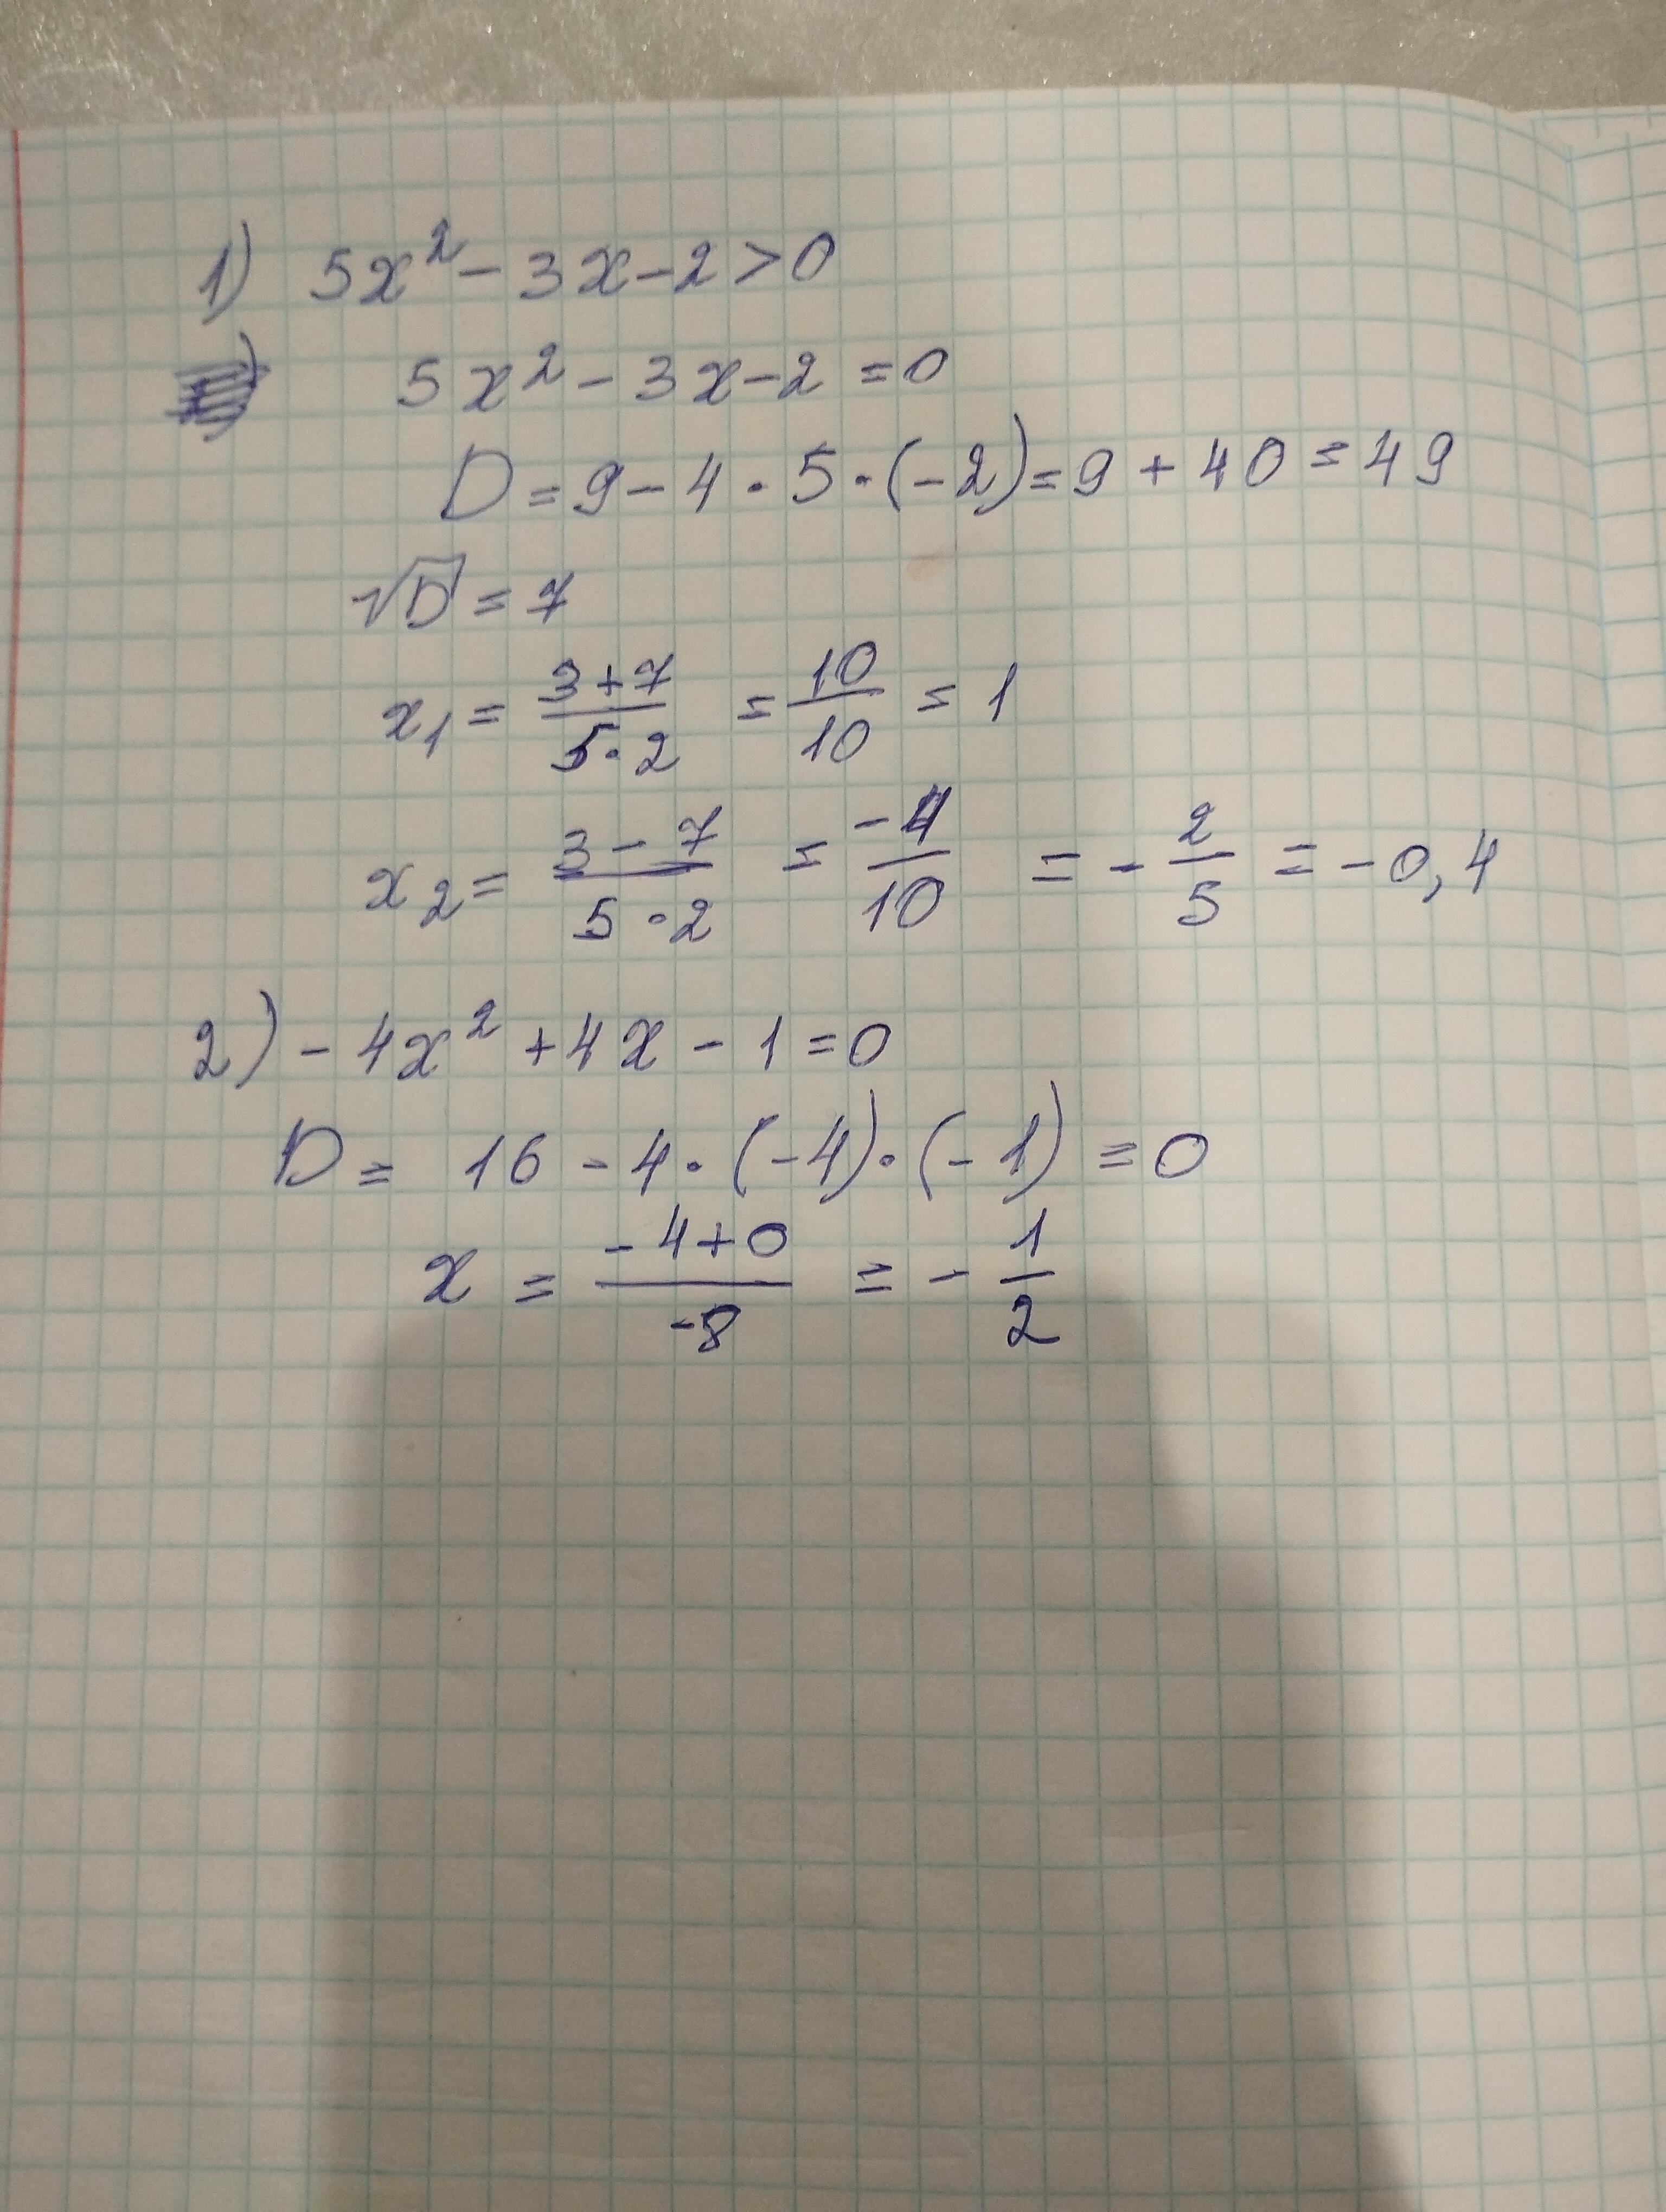 1) 5x² - 3x - 2 > 0
5x² - 3x - 2 = 0
D = 9 - 4 · 5 · (-2) = 9 + 40 = 49
√D = 7
x₁ = (3+7)/(5·2) = 10/10 = 1
x₂ = (3-7)/(5·2) = -4/10 = -2/5 = -0,4
2) -4x² + 4x - 1 = 0
D = 16 - 4 · (-4) · (-1) = 0
x = (-4+0)/(-8) = -1/2